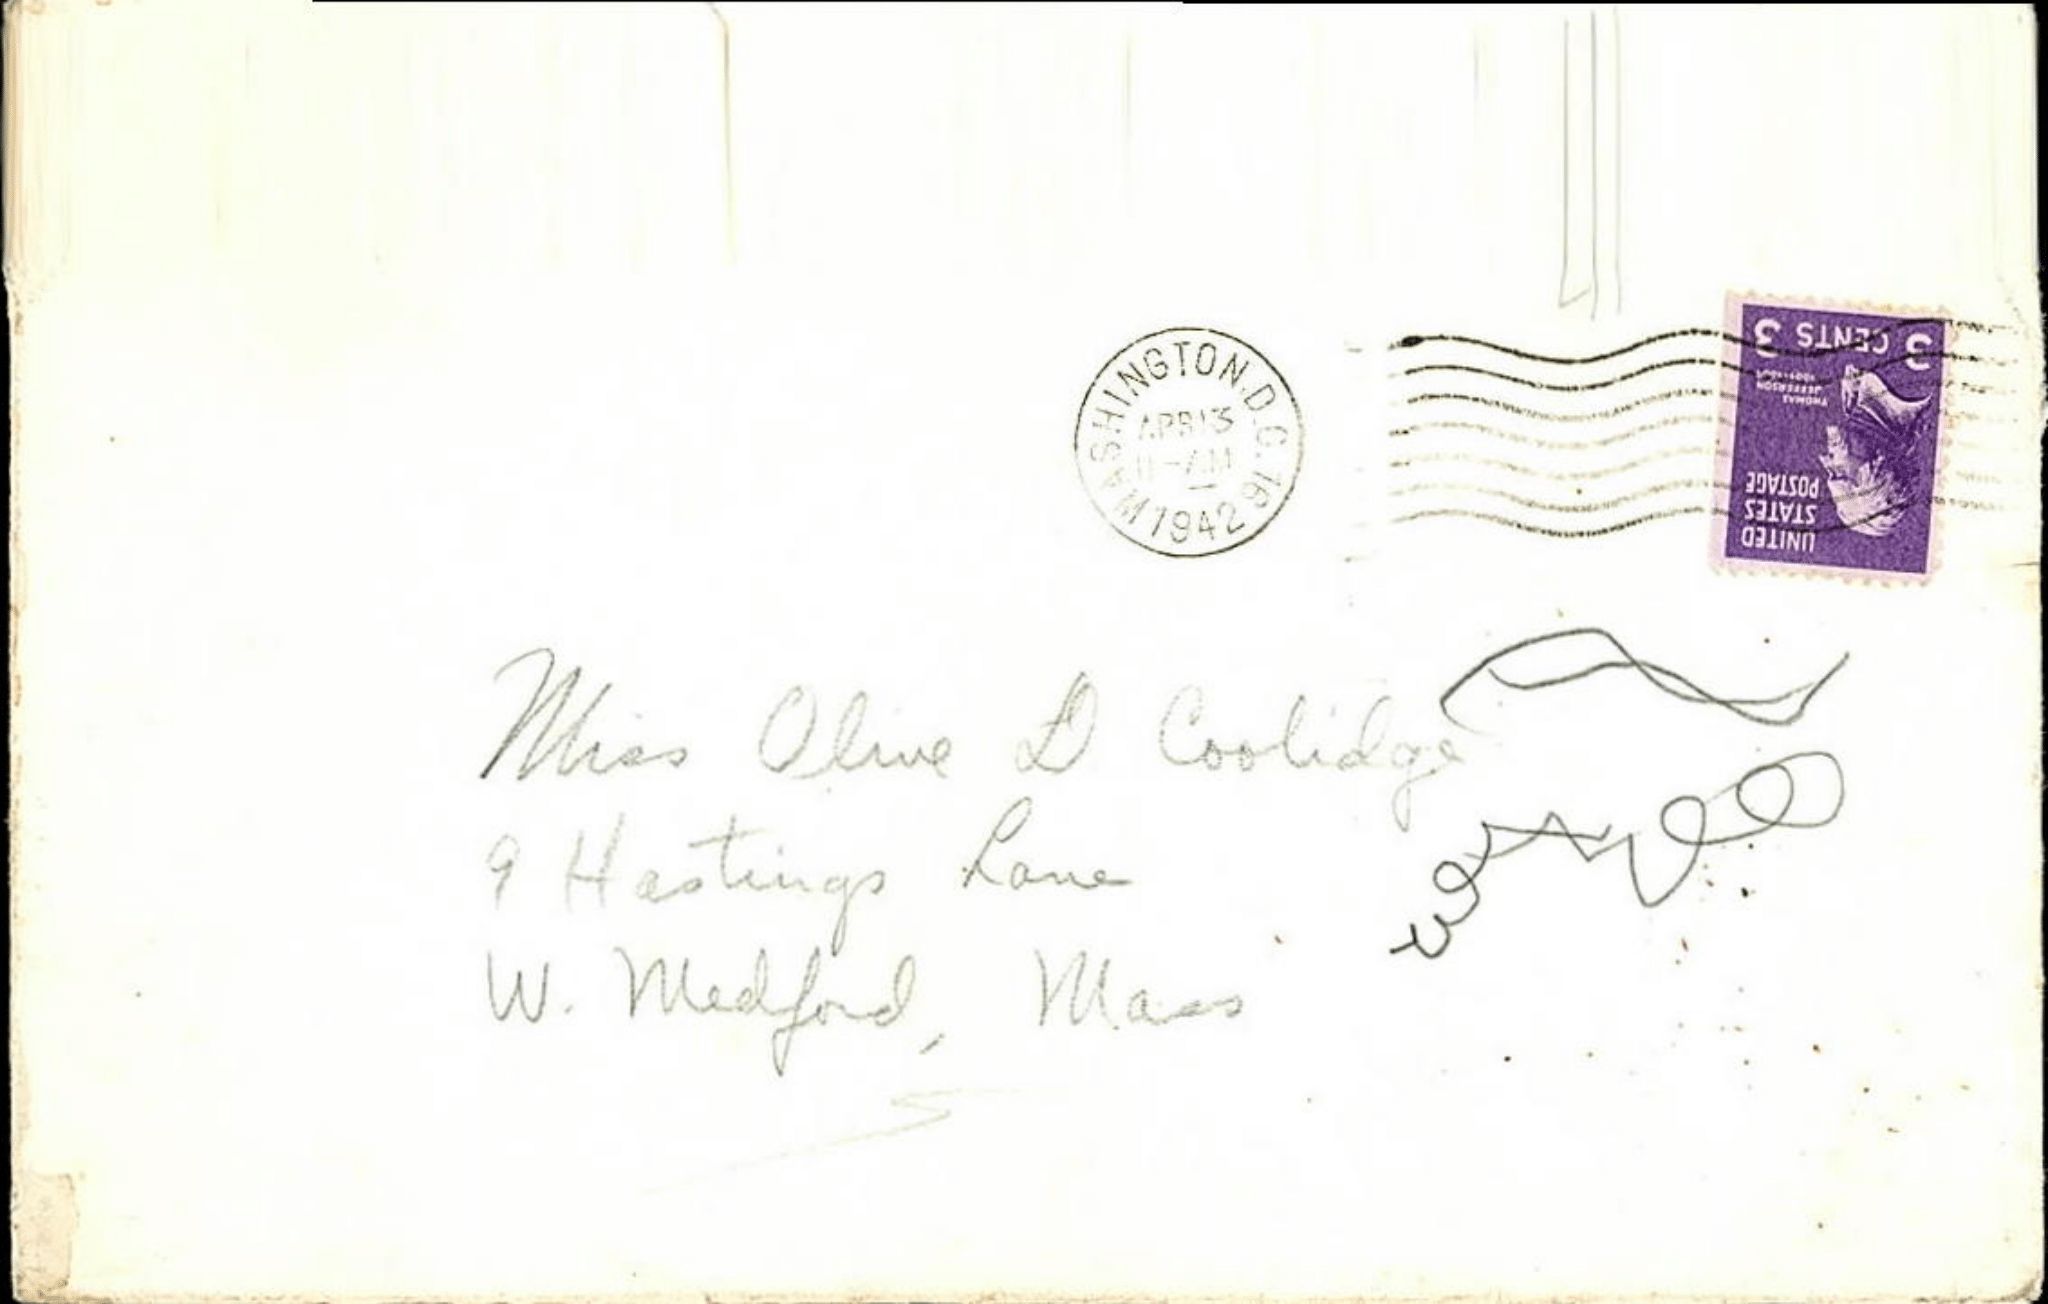 WASHINGTON, D.C. 16
APR 13
11-AM
1942
3 CENTS 3
THOMAS
JEFFERSON
UNITED
STATES
POSTAGE
Miss Olive D Coolidge
9 Hastings Lane
W. Medford, Mass